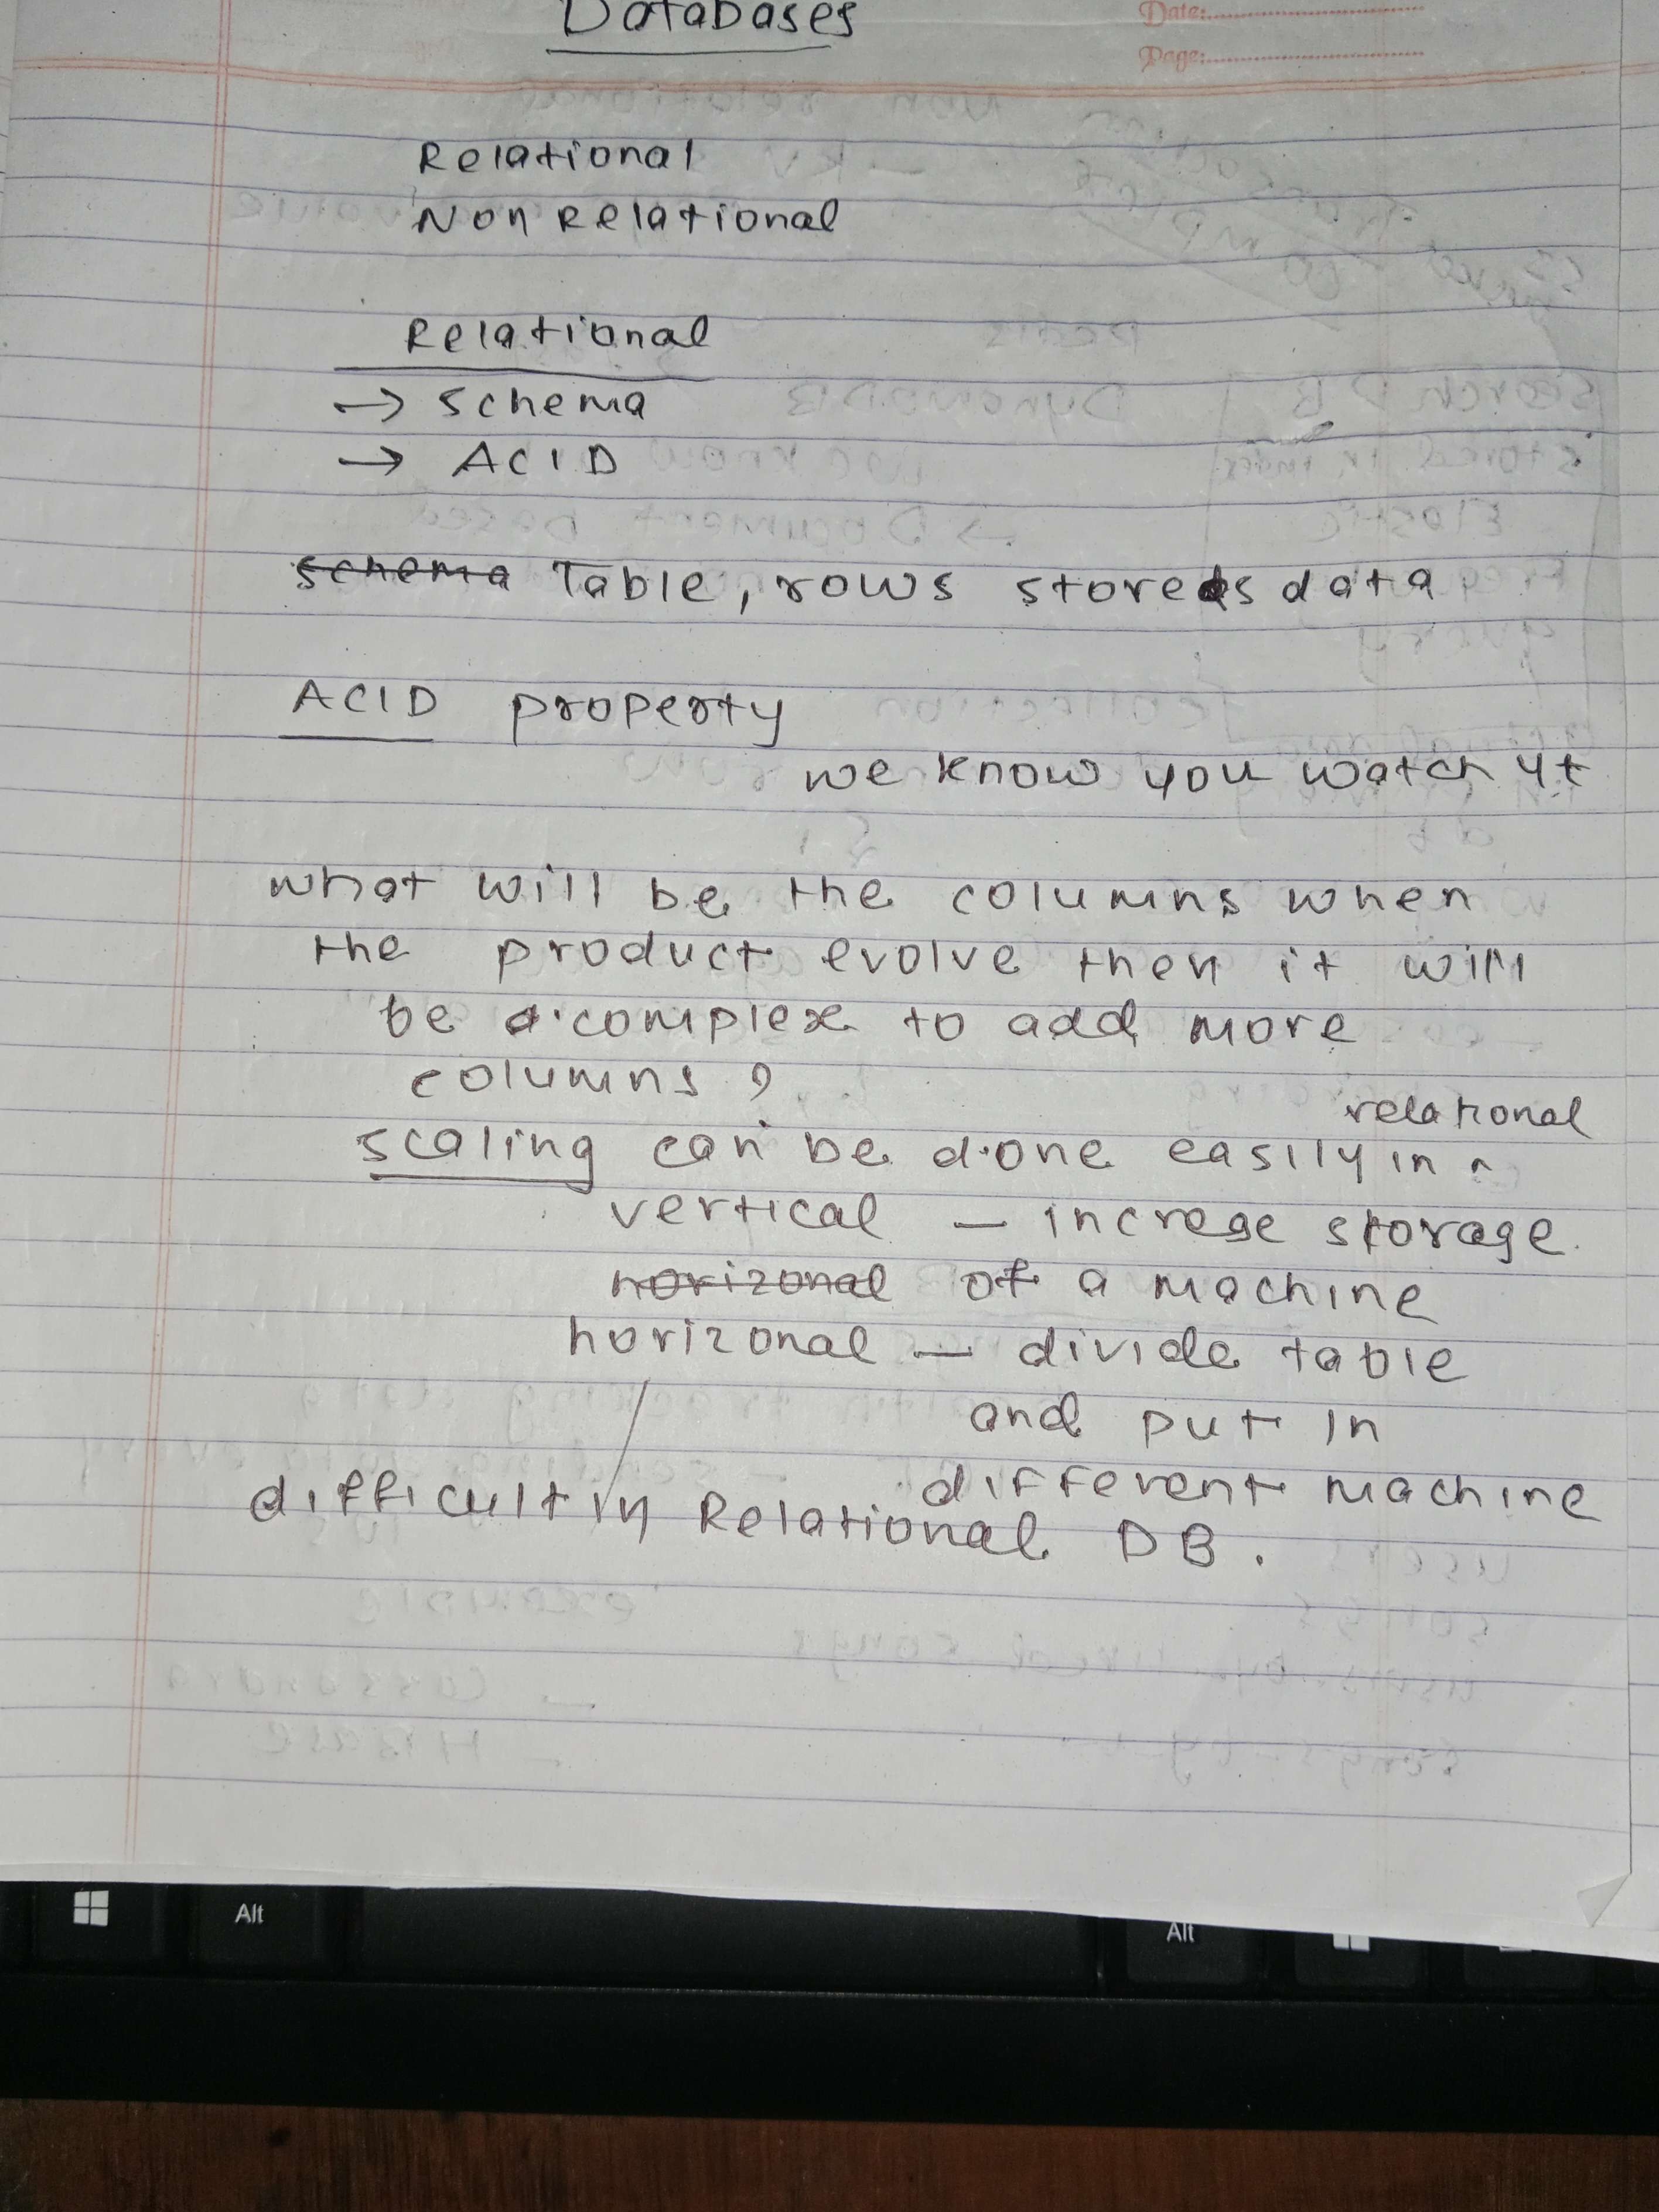 Databases
Date:
Page:
Relational
Non Relational
Relational
→ schema
→ ACID
schema Table, rows stores data
ACID property
we know you watch yt
what will be the columns when
the product evolve then it will
be a complex to add more
columns ?
relational
scaling can be done easily in
vertical — increase storage
horizonal of a machine
horizonal — divide table
and put in
different machine
difficult in Relational DB.
Alt
Alt